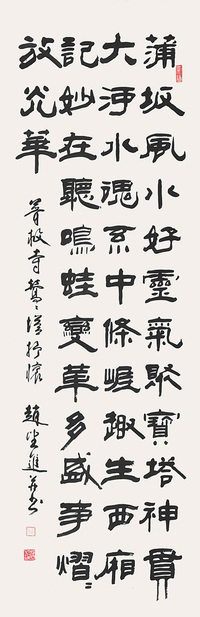 蒲坂風水好靈氣聚寶塔神貫
大河水魂系中條崕趣生西廂
記妙在聽鳴蛙變革多盛事熠
放光華
普救寺鶯〻抒懷 趙望進并書